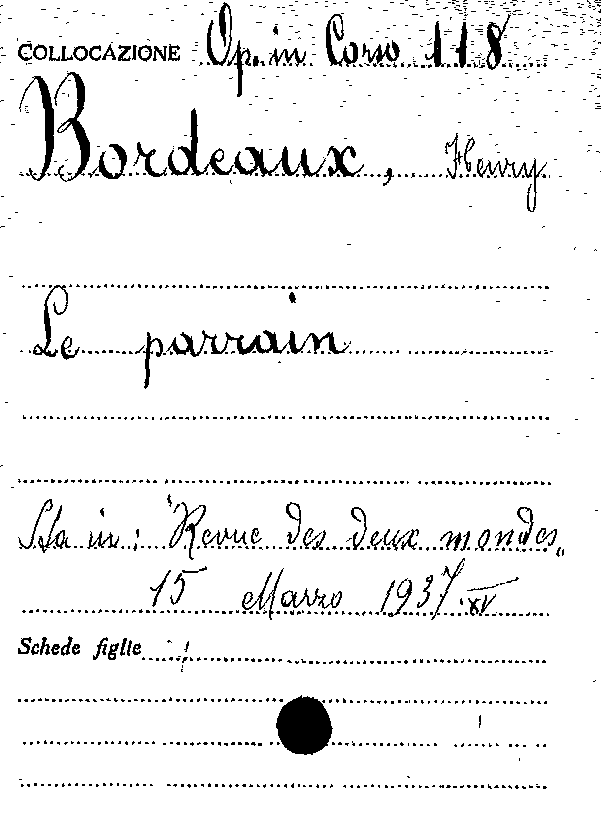 COLLOCAZIONE Op. in Corso 118
Bordeaux, Henry
Le parrain
Sta in: "Revue des deux mondes"
15 Marzo 1937.XV
Schede figlie